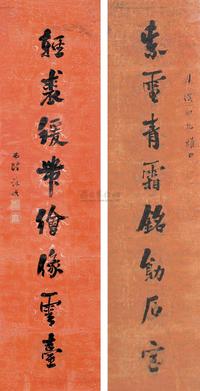 紫電青霜銘勛石室
輕裘緩帶繪像雲臺